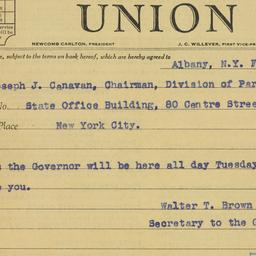 UNION
NEWCOMB CARLTON, PRESIDENT J. C. WILLEVER, FIRST VICE-PR
e, subject to the terms on back hereof, which are hereby agreed to
Albany, N.Y. F
oseph J. Canavan, Chairman, Division of Par
No. State Office Building, 80 Centre Stree
Place New York City.
s the Governor will be here all day Tuesday
e you.
Walter T. Brown
Secretary to the G